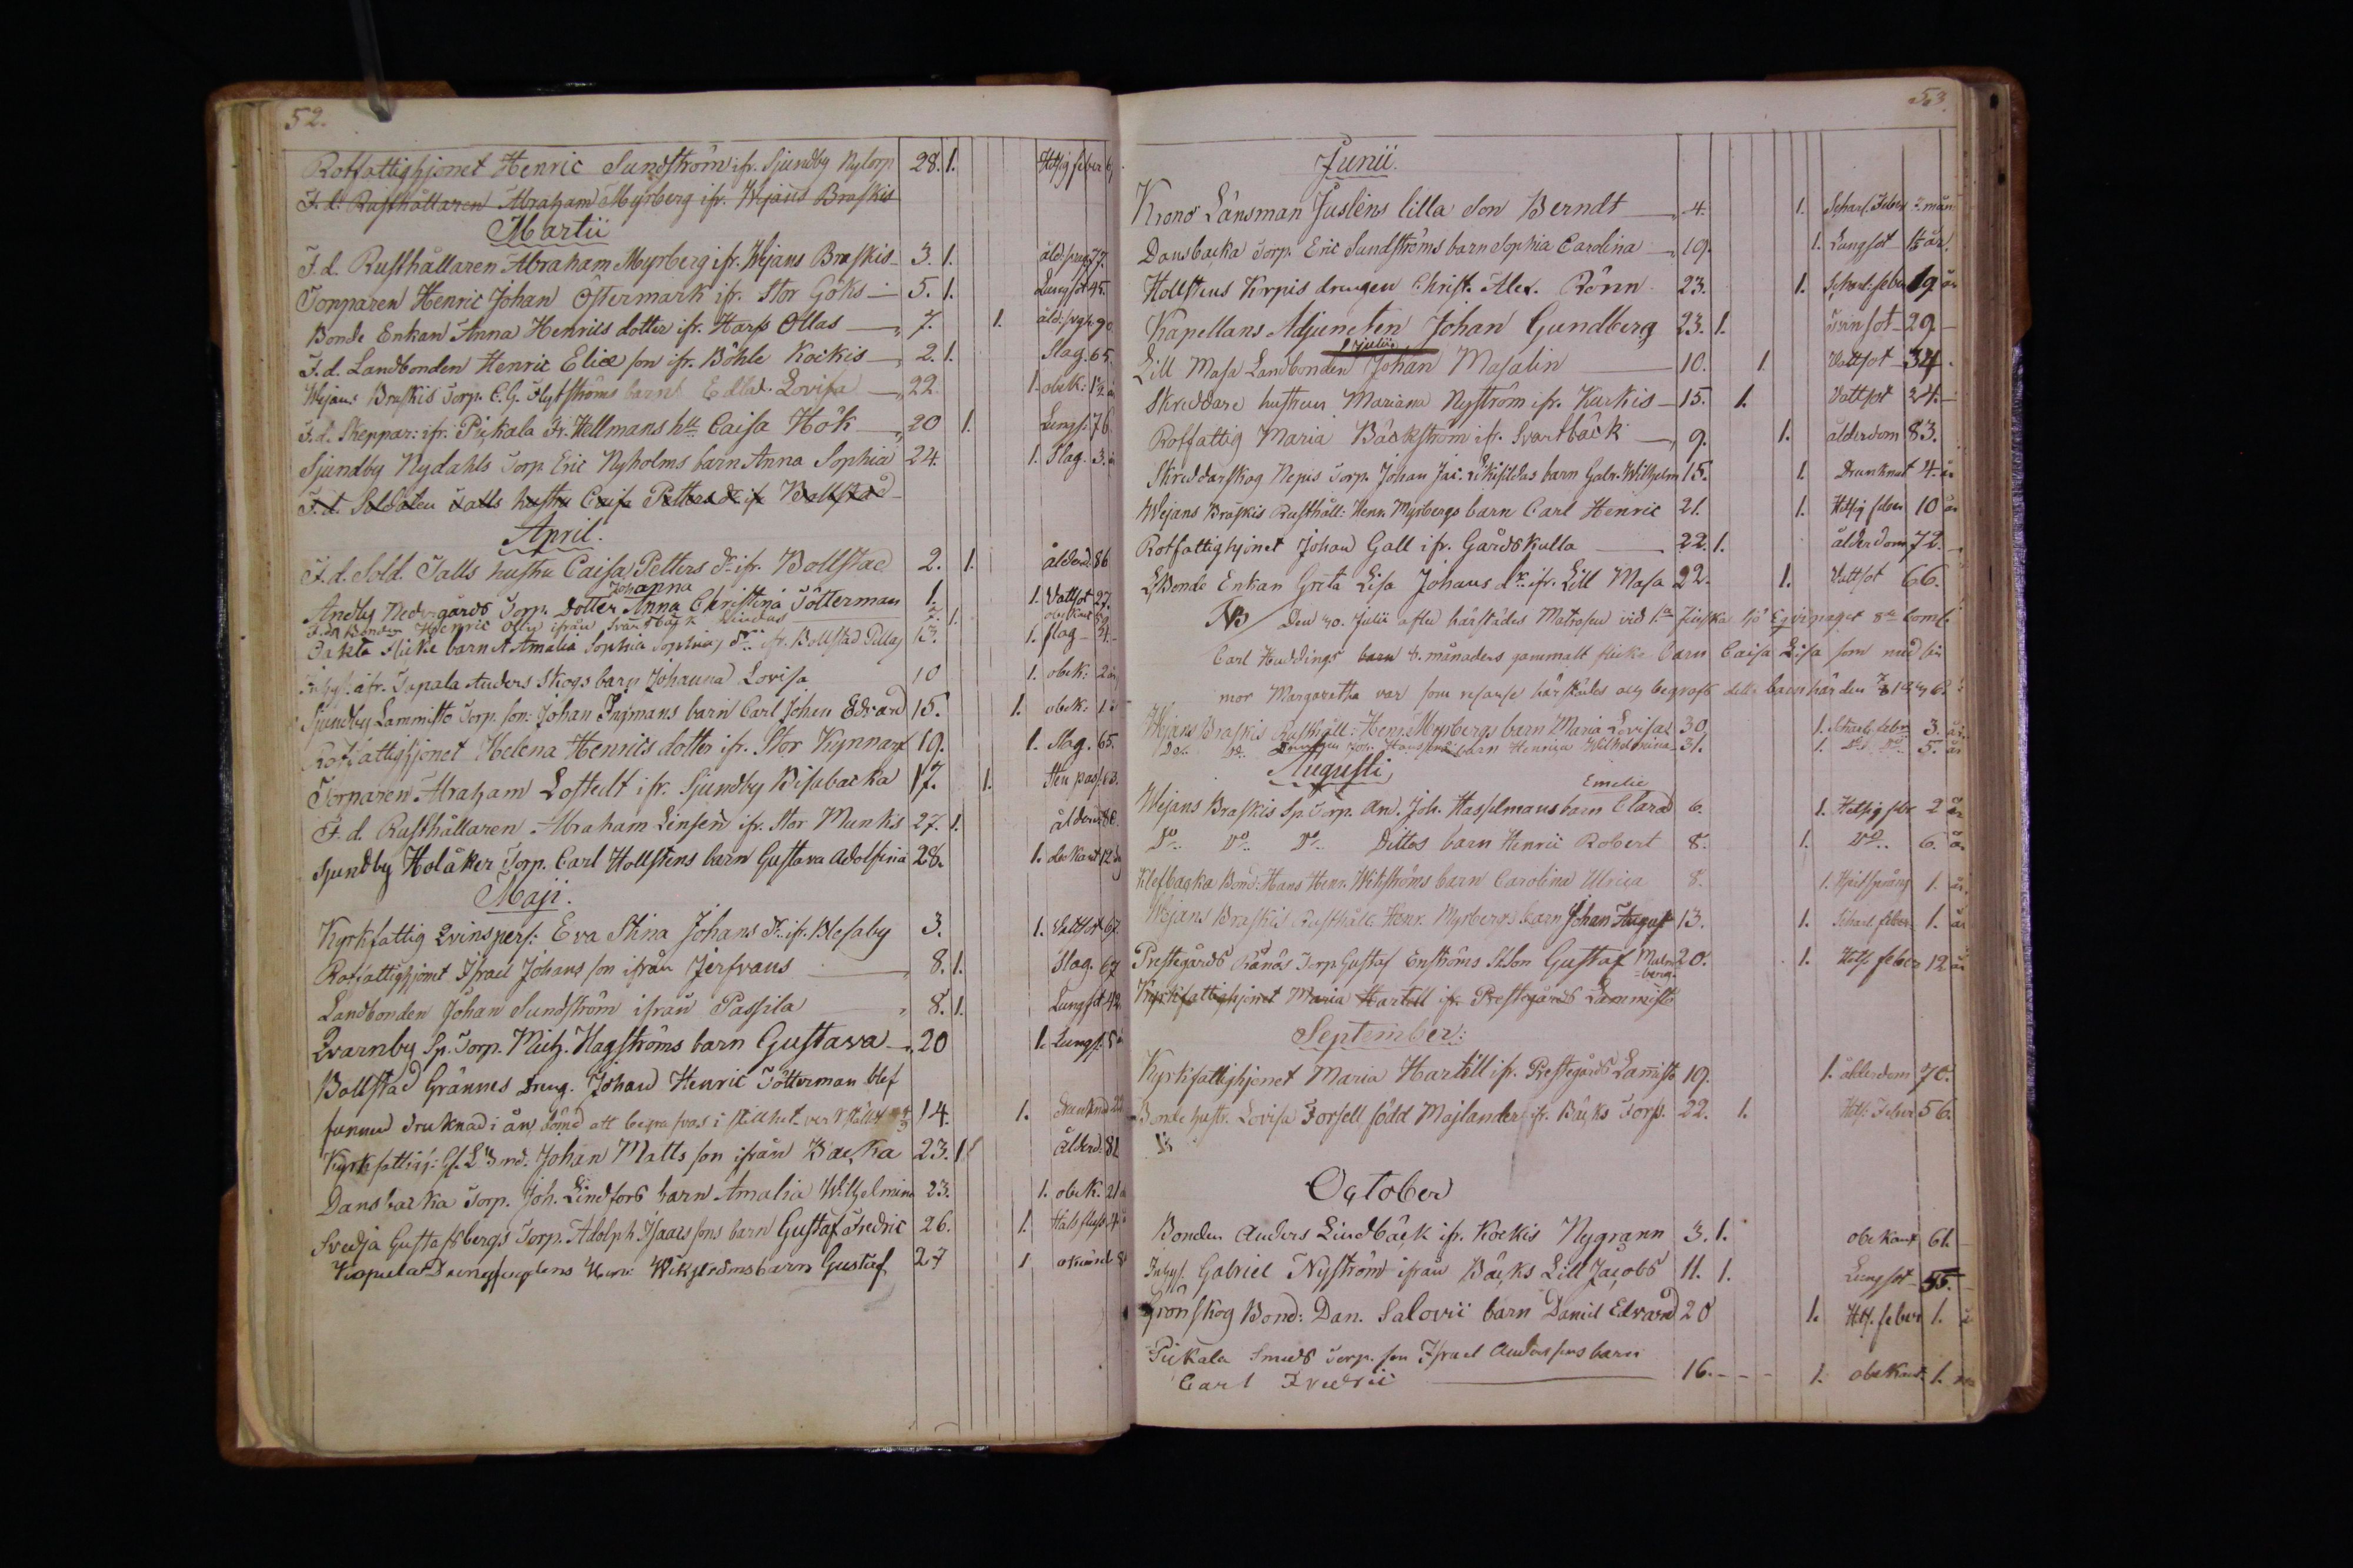 52.
Rotfattighjonet Henric Sundström ifr. Sjundby Nytorp 28. 1. Hetsig feber
F.d. Rusthållaren Abraham Myrberg ifr. Wejans Braskis
Martii
F.d. Rusthållaren Abraham Myrberg ifr. Wejans Braskis 3. 1. 77.
Torparen Henric Johan Östermark ifr. Stor Göks 5. 1. Lungsot 45.
Bonde Enkan Anna Henrics dotter ifr. Harfs Ollas 7. 1. 90
F.d. Landbonden Henric Eliæ son ifr. Böhle Kockis 2. 1. Slag. 65.
Wejans Braskis Torp. C.G. Flytströms barn Edla Lovisa 22. 1. obek: 1½
F.d. Skeppar: ifr. Pickala Fr. Hellmans hu Caisa Hök 20 1. Lungs: 76.
Sjundby Nydahls Torp. Eric Nyholms barn Anna Sophia 24. 1. Slag. 3.
F.d. Soldaten Talls hustru Caisa Petters dr ifr Bollstad
April.
F.d. Sold. Talls hustru Caisa Petters dr ifr. Bollstad 2. 1. ålderd. 86
Johanna
Andby Nedergårds Torp. Dotter Anna Christina Tötterman 1. 1. Vattsot 27.
F.d. Bonden Henric Olly ifrån Svartbäck 7. 1.
flicke barn Amalia Sophia dr. ifr. Bollstad 13. 1. slag
Tupala Anders Skogs barn Johanna Lovisa 10 1. obek: 2
Sjundby Lammitto Torp. son: Johan Ingmans barn Carl Johan Edvard 15. 1. obek: 1
Rotfattighjonet Helena Henrics dotter ifr. Stor Kynnar 19. 1. Slag. 65.
Torparen Abraham Lostedt ifr. Sjundby Bisabacka 17. 1. Sten pass. 63.
F.d. Rusthållaren Abraham Linsen ifr. Stor Munkis 27. 1. ålderd. 80.
Sjundby Holåker Torp. Carl Hollstens barn Gustava Adolfina 28. 1. obekant 12
Maji.
Kyrkfattig Qvinspers: Eva Stina Johans dr. ifr. Wesaby 3. 1. Vattsot 67.
Rotfattighjonet Israel Johans son ifrån Jerfvans 8. 1. Slag. 67
Landbonden Johan Sundström ifrån Passila 8. 1. Lungsot 42
Qvarnby Sp. Torp. Mich. Hagströms barn Gustava 20 1. Lungs: 5
Bollstad Grännes Dreng. Johan Henric Tötterman blef
funnen druknad i ån, dömd att begrafvas i stillhet verkstäldt 14. 1. Drunknad 22
Kyrkfattig: Johan Matts son ifrån Backa 23. 1 ålderd: 81
Dansbacka Torp. Joh. Lindfors barn Amalia Wilhelmina 23. 1. obek. 21
Svedja Gustafsbergs Torp. Adolph Isaacssons barn Gustaf Fredric 26. 1. Halsfluss 4.
Kopula Henr: Wikströms barn Gustaf 27 1 okänd 8
53.
Junii.
Krono Länsman Juslens lilla son Berndt 4. 1. Scharl. Feber mån
Dansbacka Torp. Eric Sundströms barn Sophia Carolina 19. 1. Lungsot 1½ år.
Hollstens Korpis drengen Christ. Alex. Rönn 23. 1. Scharl: feber 19 år
Kapellans Adjuncten Johan Gundberg 23. 1. Tvinsot 29
Julii
Lill Masa Landbonden Johan Masalin 10. 1. Vattsot 34
Skreddare hustrun Mariana Nyström ifr. Kurkis 15. 1. Vattsot 34.
Rotfattig Maria Bäckström ifr. Svartbäck 9. 1. ålderdom 83.
Skreddarskog Nepis Torp. Johan Jac. barn Gabr. Wilhelm 15. 1. Drunknat 4. år
Wejans Braskis Rusthåll: Henr. Myrbergs barn Carl Henric 21. 1. Hetsig feber 10 år
Rotfattighjonet Johan Gall ifr. Gårdskulla 22. 1. ålderdom 72.
Bonde Enkan Greta Lisa Johans dr. ifr. Lill Masa 22. 1. Vattsot 66.
NB Den 30. Julii afled härstädes Matrosen vid 1a Finska Sjö Eqvipaget 8de
Carl Huddings barn 8. månaders gammalt flicke barn Caisa Lisa som med sin
mor Margaretha var som resande härstädes och begrofs detta barn här den
Wejans Braskis Rusthåll: Henr. Myrbergs barn Maria Lovisa 30, 1. Scharl. feber 3. år.
Do. Do. barn Henrica Wilhelmina 31. 1. Do. Do. 5. år
Augusti,
Emelie
Wejans Braskis Sp. Torp. An. Joh. Hasselmans barn Clara 6. 1. Hetsig feb. 2 år
Do.. Do.. Do.. Dittos barn Henric Robert 8. 1. Do.. 6. år
Klefbacka Bond: Hans Henr. Wikströms barn Carolina Ulrica 8. 1. 1. år.
Wejans Braskis Rusthåll: Henr. Myrbergs barn Johan August 13. 1. Scharl feber 1. år
Prestegårds Rånås Torp Gustaf Enströms St.Son Gustaf Malmberg 20. 1. Hets. feber 12 år
Kyrkfattighjonet Maria Hartell ifr Prestegårds Lammitto
September:
Kyrkfattighjonet Maria Hartell ifr. Prestegårds Lamito 19. 1. ålderdom 70.
Bonde hustr. Lovisa Forsell född Majlander ifr. Bäcks Torp. 22. 1. Hets: Feber 56.
October
Bonden Anders Lindbäck ifr. Kockis Nygrann 3. 1. obekant 61.
Inhys. Gabriel Nyström ifrån Bäcks Lill Jacobs 11. 1. Lungsot 55.
Grönskog Bond: Dan. Salovii barn Daniel Edvard 20 1. Hets. feber 1.
Pickala Smeds Torp. son Israel Anderssons barn
Carl Fredric 16. 1. obekant. 1.